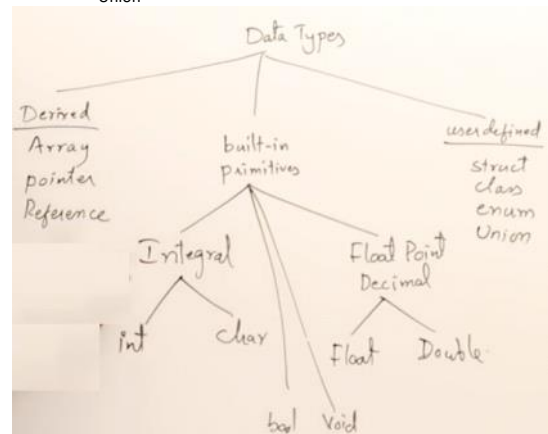 Union
Data Types
Derived
Array
pointer
Reference
built-in
primitives
userdefined
struct
class
enum
Union
Integral
Float Point
Decimal
int
char
Float
Double
bool
void